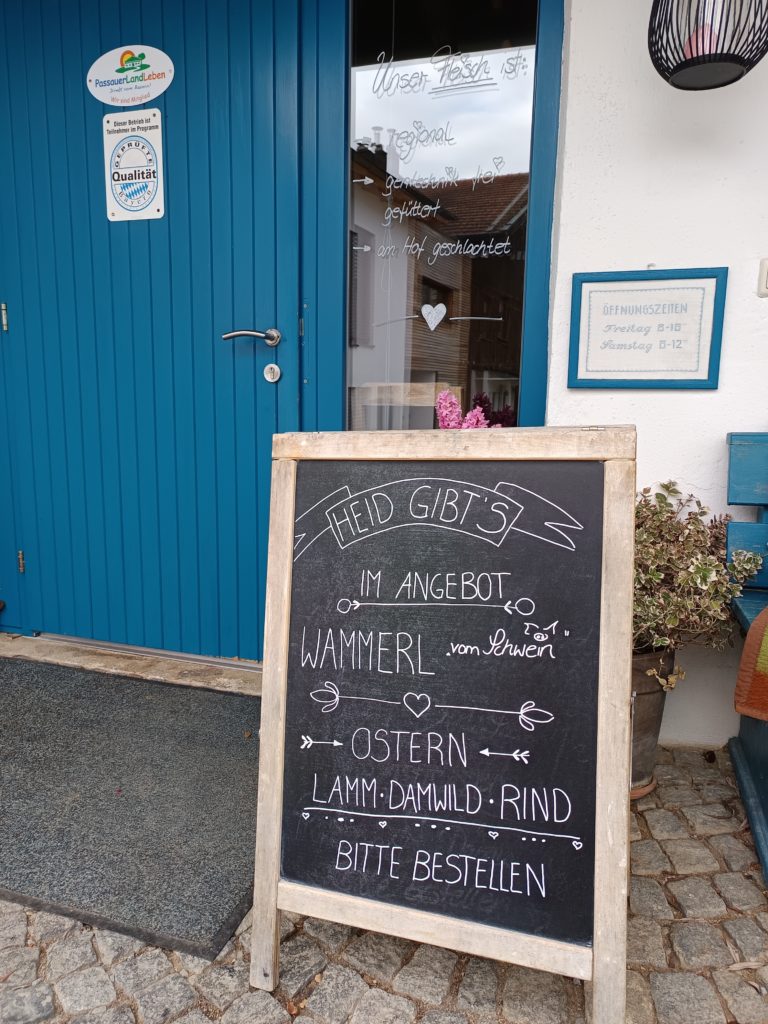 PassauerLandLeben
Direkt vom Bauern!
Wir sind Mitglied
Dieser Betrieb ist
Teilnehmer im Programm
GEPRÜFTE
Qualität
BAYERN
Unser Fleisch ist:
regional
gentechnik frei
gefüttert
am Hof geschlachtet
ÖFFNUNGSZEITEN
Freitag 8-18
Samstag 8-12
HEID GIBT'S
IM ANGEBOT
WAMMERL „vom Schwein"
OSTERN
LAMM · DAMWILD · RIND
BITTE BESTELLEN